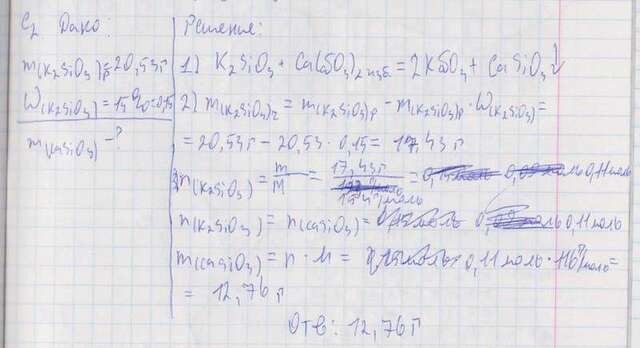 C₂ Дано:
m(K₂SiO₃)р=20,53г
W(K₂SiO₃)=15%=0,15
m(CaSiO₃) -?
Решение:
1) K₂SiO₃ + Ca( )₂ изб.= 2K + CaSiO₃↓
2) m(K₂SiO₃)2 = m(K₂SiO₃)р - m(K₂SiO₃)р · W(K₂SiO₃)=
= 20,53г - 20,53 · 0,15 = 17,43 г
n(K₂SiO₃) = m/M = 17,43г/154 г/моль = 0,11моль
n(K₂SiO₃) = n(CaSiO₃)= 0,11моль
m(CaSiO₃) = n · M = 0,11моль · 116 г/моль=
= 12,76 г
Отв: 12,76г